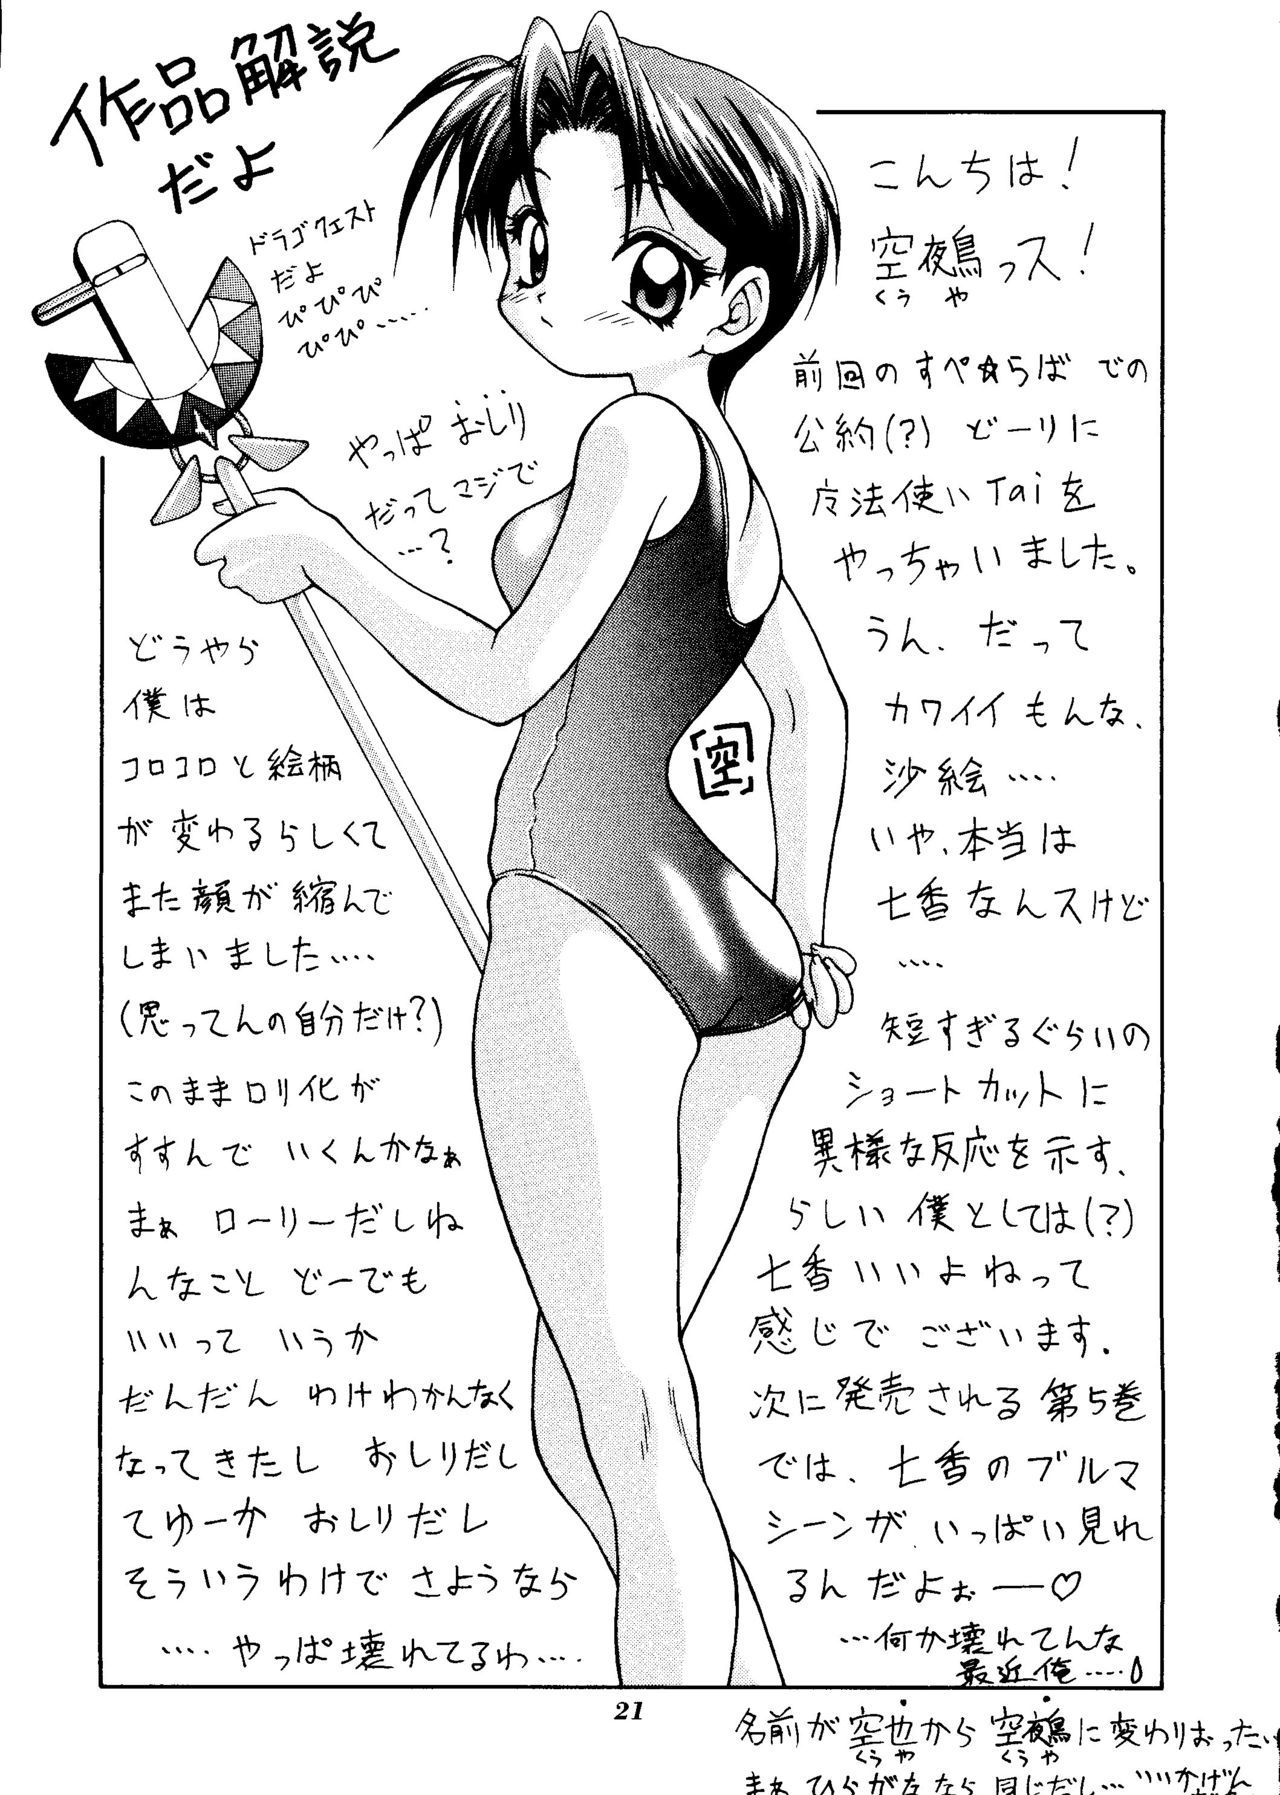 作品解説
だよ
ドラゴクエスト
だよ
ぴぴぴ
ぴぴ……
やっぱ おしり
だって マジで
…?
こんちは!
空夜鳥っス!
くう や
前回のすぺ☆らば での
公約(?) どーりに
法使いTaiを
やっちゃいました。
うん、だって
カワイイもんな、
沙絵……
いや、本当は
七香なんスけど
……
短すぎるぐらいの
ショートカットに
異様な反応を示す、
らしい 僕としては(?)
七香いいよねって
感じでございます。
次に発売される 第5巻
では、七香のブルマ
シーンが いっぱい見れ
るんだよぉー♡
…何か壊れてんな
最近俺……
空
どうやら
僕は
コロコロと絵柄
が変わるらしくて
また顔が縮んで
しまいました……
(思ってんの自分だけ?)
このままロリ化が
すすんで いくんかなぁ
まぁ ローリーだしね
んなこと どーでも
いいって いうか
だんだん わけわかんなく
なってきたし おしりだし
てゆーか おしりだし
そういうわけで さようなら
……やっぱ壊れてるわ……
21
名前が空也から 空夜鳥に変わりおったい
くうや くうや
まぁ ひらがななら 同じだし… いいかげん